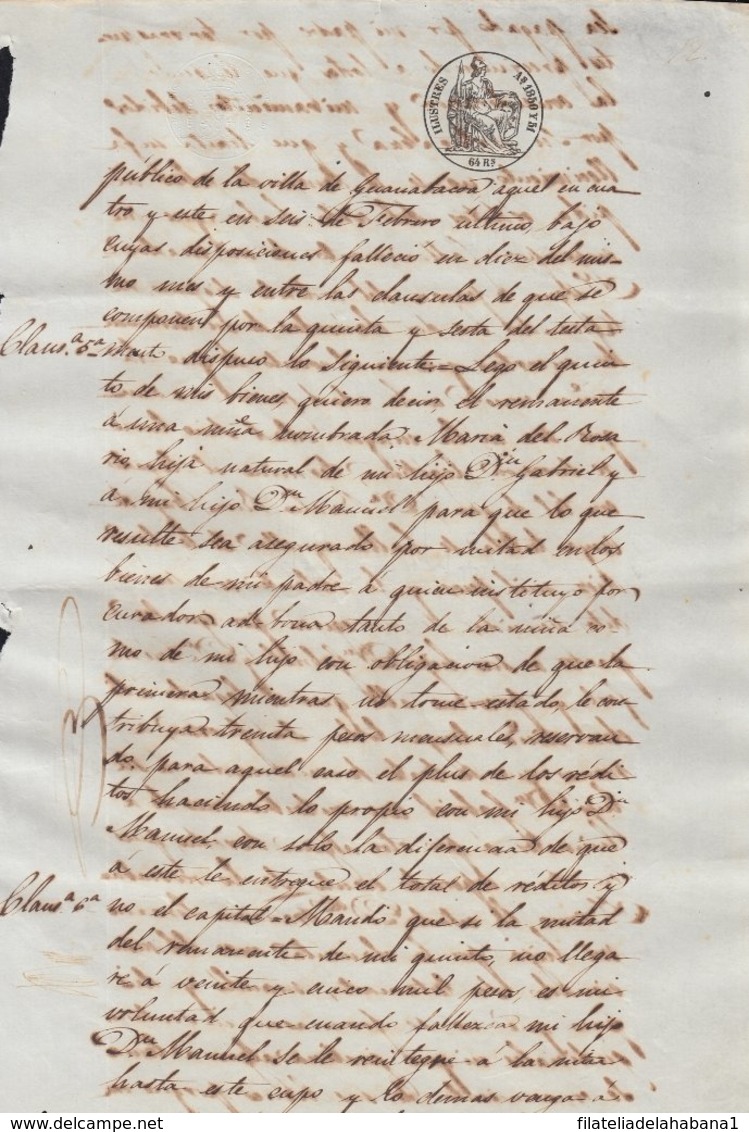 12.
ILUSTRES
Aˢ 1850 Y 51
64 Rˢ
público de la villa de Guanabacoa aquel en cua
tro y este en seis de Febrero ultimo, bajo
cuyas disposiciones falleció en diez del mis-
mo mes y entre las clausulas de que se
componen por la quinta y sesta del testa-
Clausª 5ª
mentº dispuso lo siguiente.= Lego el quin
to de mis bienes, quiero decir, el remanente
á una niña nombrada Maria del Rosa
rio, hija natural de mi hijo Dⁿ Gabriel y
á mi hijo Dⁿ Manuel para que lo que
resulte sea asegurado por mitad en los
bienes de mi padre a quien instituyo por
curador ad-bona tanto de la niña co-
mo de mi hijo con obligacion de que la
primera mientras no tome estado, le con
tribuya treinta pesos mensuales, reservan
do para aquel caso el plus de los rédi
tos haciendo lo propio con mi hijo Dⁿ
Manuel, con solo la diferencia de que
á este le entregue el total de réditos y
Clausª 6ª
no el capital = Mando que si la mitad
del remanente de mi quinto, no llega
re á veinte y cinco mil pesos, es mi
voluntad que cuando fallezca mi hijo
Dⁿ Manuel se le reintegre á la niña
hasta este cupo y lo demas vaya á
filateliadelahabana1